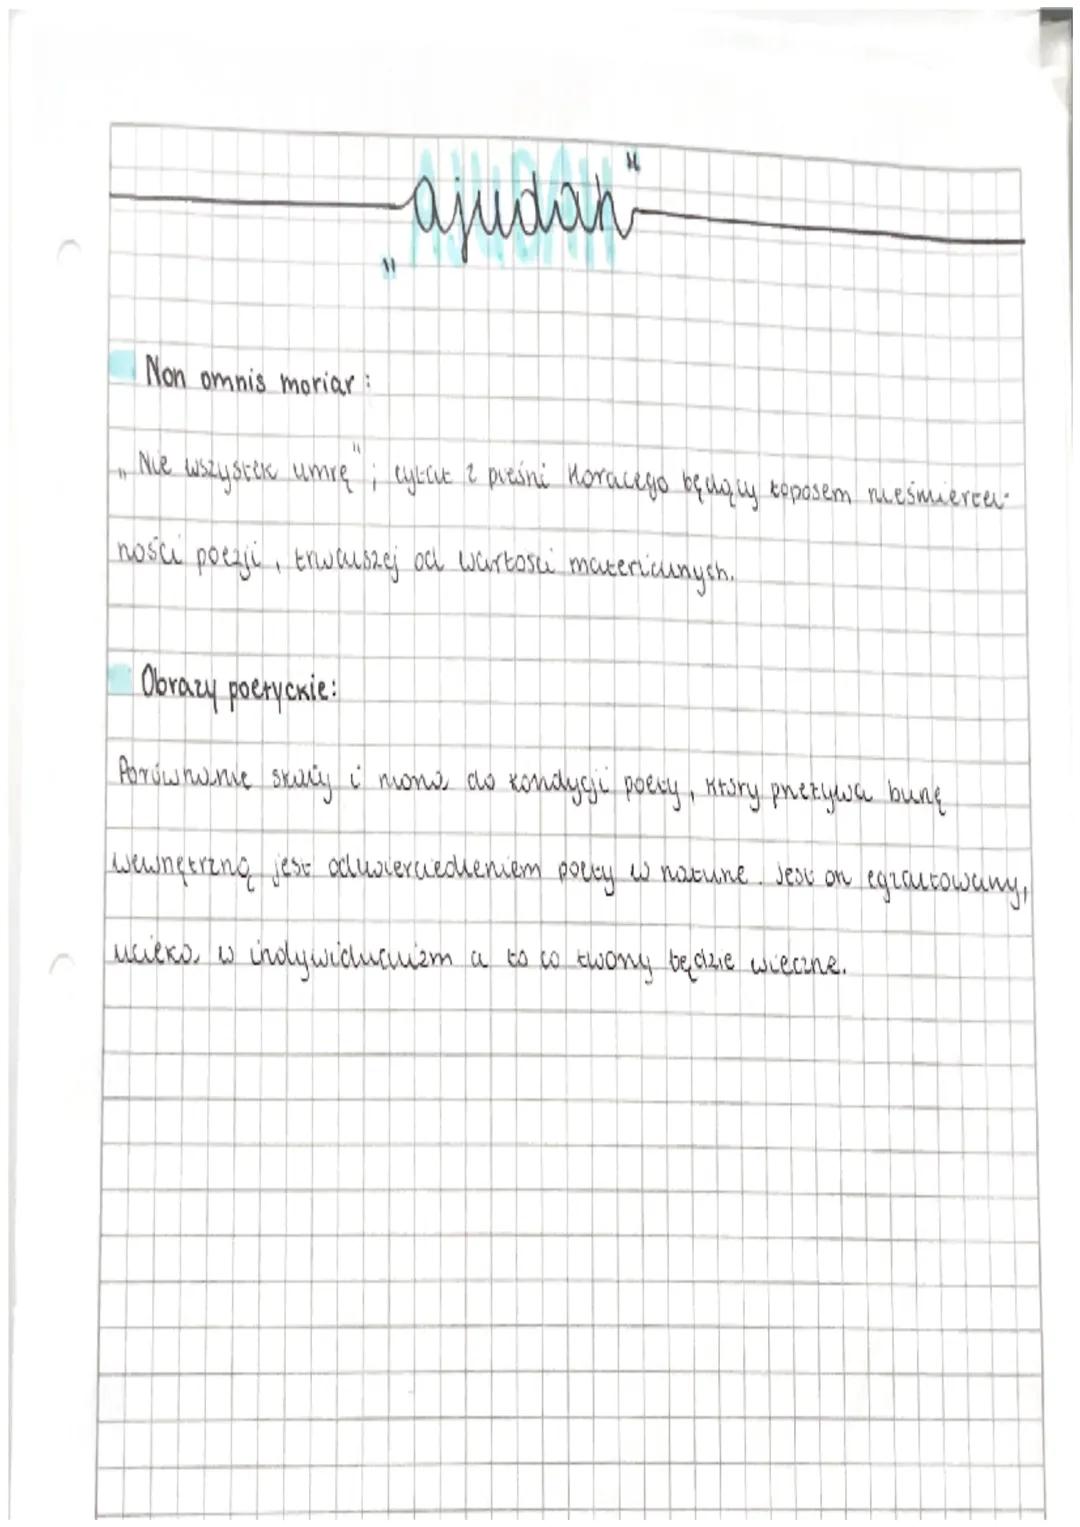 „ajudah"
Non omnis moriar :
„Nie wszystek umrę"; cytat z pieśni Horacego będący toposem nieśmiertel-
ności poezji, trwalszej od wartości materialnych.
Obrazy poetyckie:
Porównanie skały i morza do kondycji poety, który przeżywa burzę
wewnętrzną jest odzwierciedleniem poety w naturze. Jest on egzaltowany,
ucieka w indywidualizm a to co tworzy będzie wieczne.